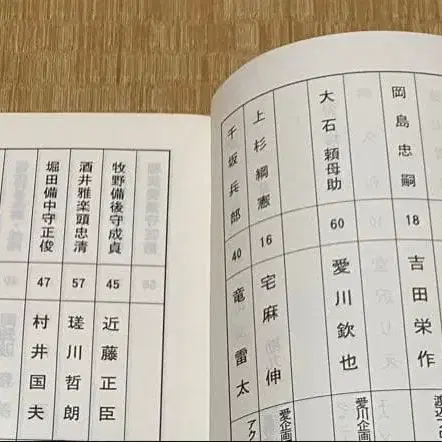 岡島忠嗣 18 吉田栄作
大石頼母助 60 愛川欽也 愛川企画
上杉綱憲 16 宅麻伸 愛企画
千坂兵部 40 竜雷太 アク
牧野備後守成貞 45 近藤正臣
酒井雅楽頭忠清 57 瑳川哲朗
堀田備中守正俊 47 村井国夫